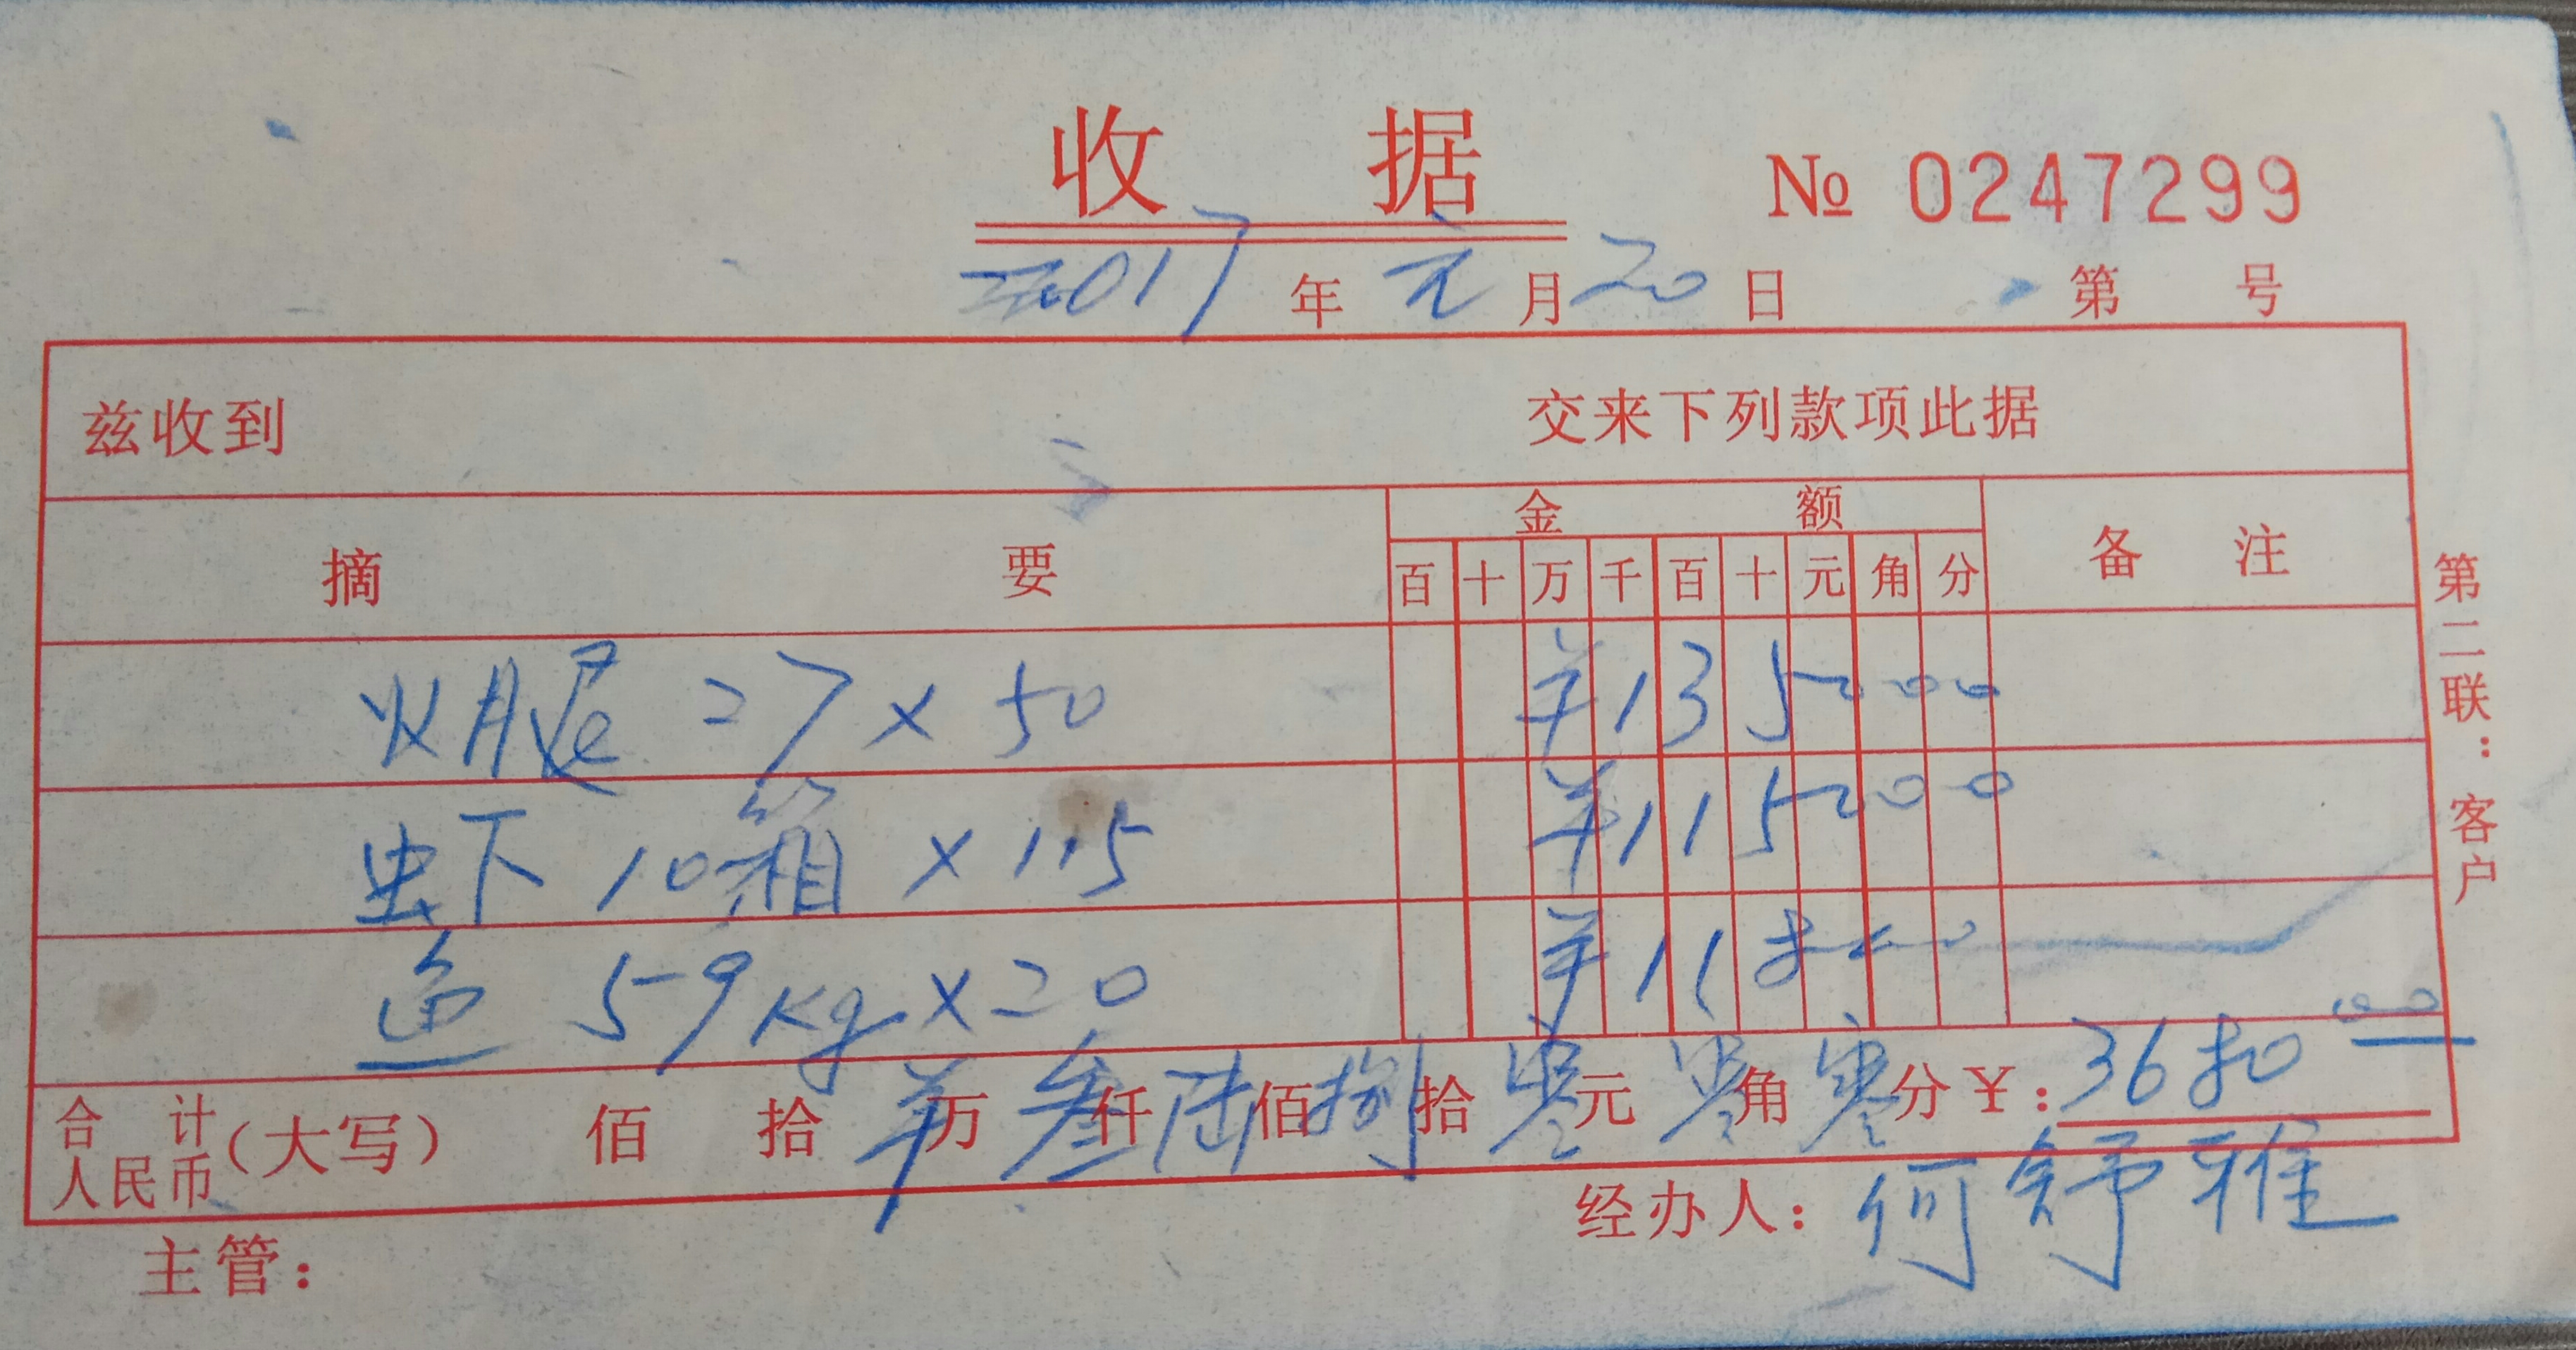 收 据 № 0247299
2017 年 元 月 20 日 第 号
兹收到 交来下列款项此据
摘 要 金 额 备 注
百 十 万 千 百 十 元 角 分
火腿 27 × 50 ¥135000
虾 10箱 × 115 ¥115000
鱼 59kg × 20 ¥118000
合计人民币(大写) 佰 拾 ¥万 叁仟 陆佰 捌拾 零元 零角 零分 ¥:3680.00
主管: 经办人:何舒雅
第二联:客户